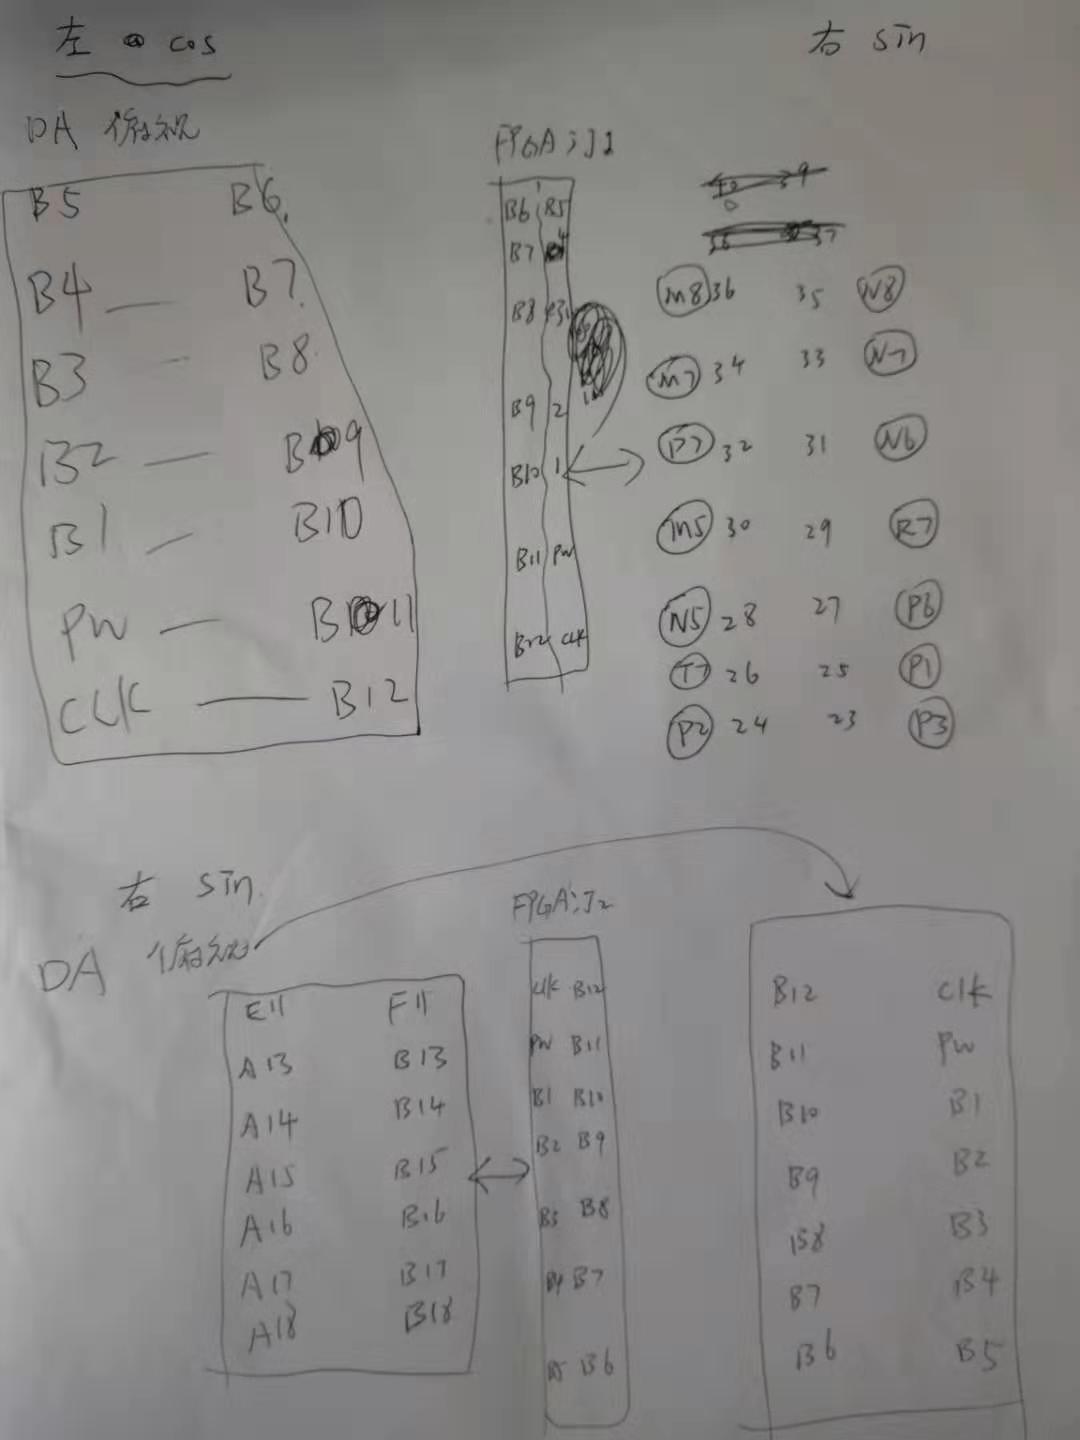 左 cos
右 sin
DA 俯视
B5 B6
B4 — B7
B3 — B8
B2 — B9
B1 — B10
PW — B11
CLK — B12
FPGA
B6 B5
B7 4
B8 3
B9 2
B10 1
B11 PW
B12 CLK
M8 36 35 N8
M7 34 33 N7
P7 32 31 N6
M5 30 29 R7
N5 28 27 P6
T7 26 25 P1
P2 24 23 P3
右 sin
DA 俯视
E11 F11
A13 B13
A14 B14
A15 B15
A16 B16
A17 B17
A18 B18
FPGA
CLK B12
PW B11
B1 B10
B2 B9
B3 B8
B4 B7
B5 B6
B12 CLK
B11 PW
B10 B1
B9 B2
B8 B3
B7 B4
B6 B5